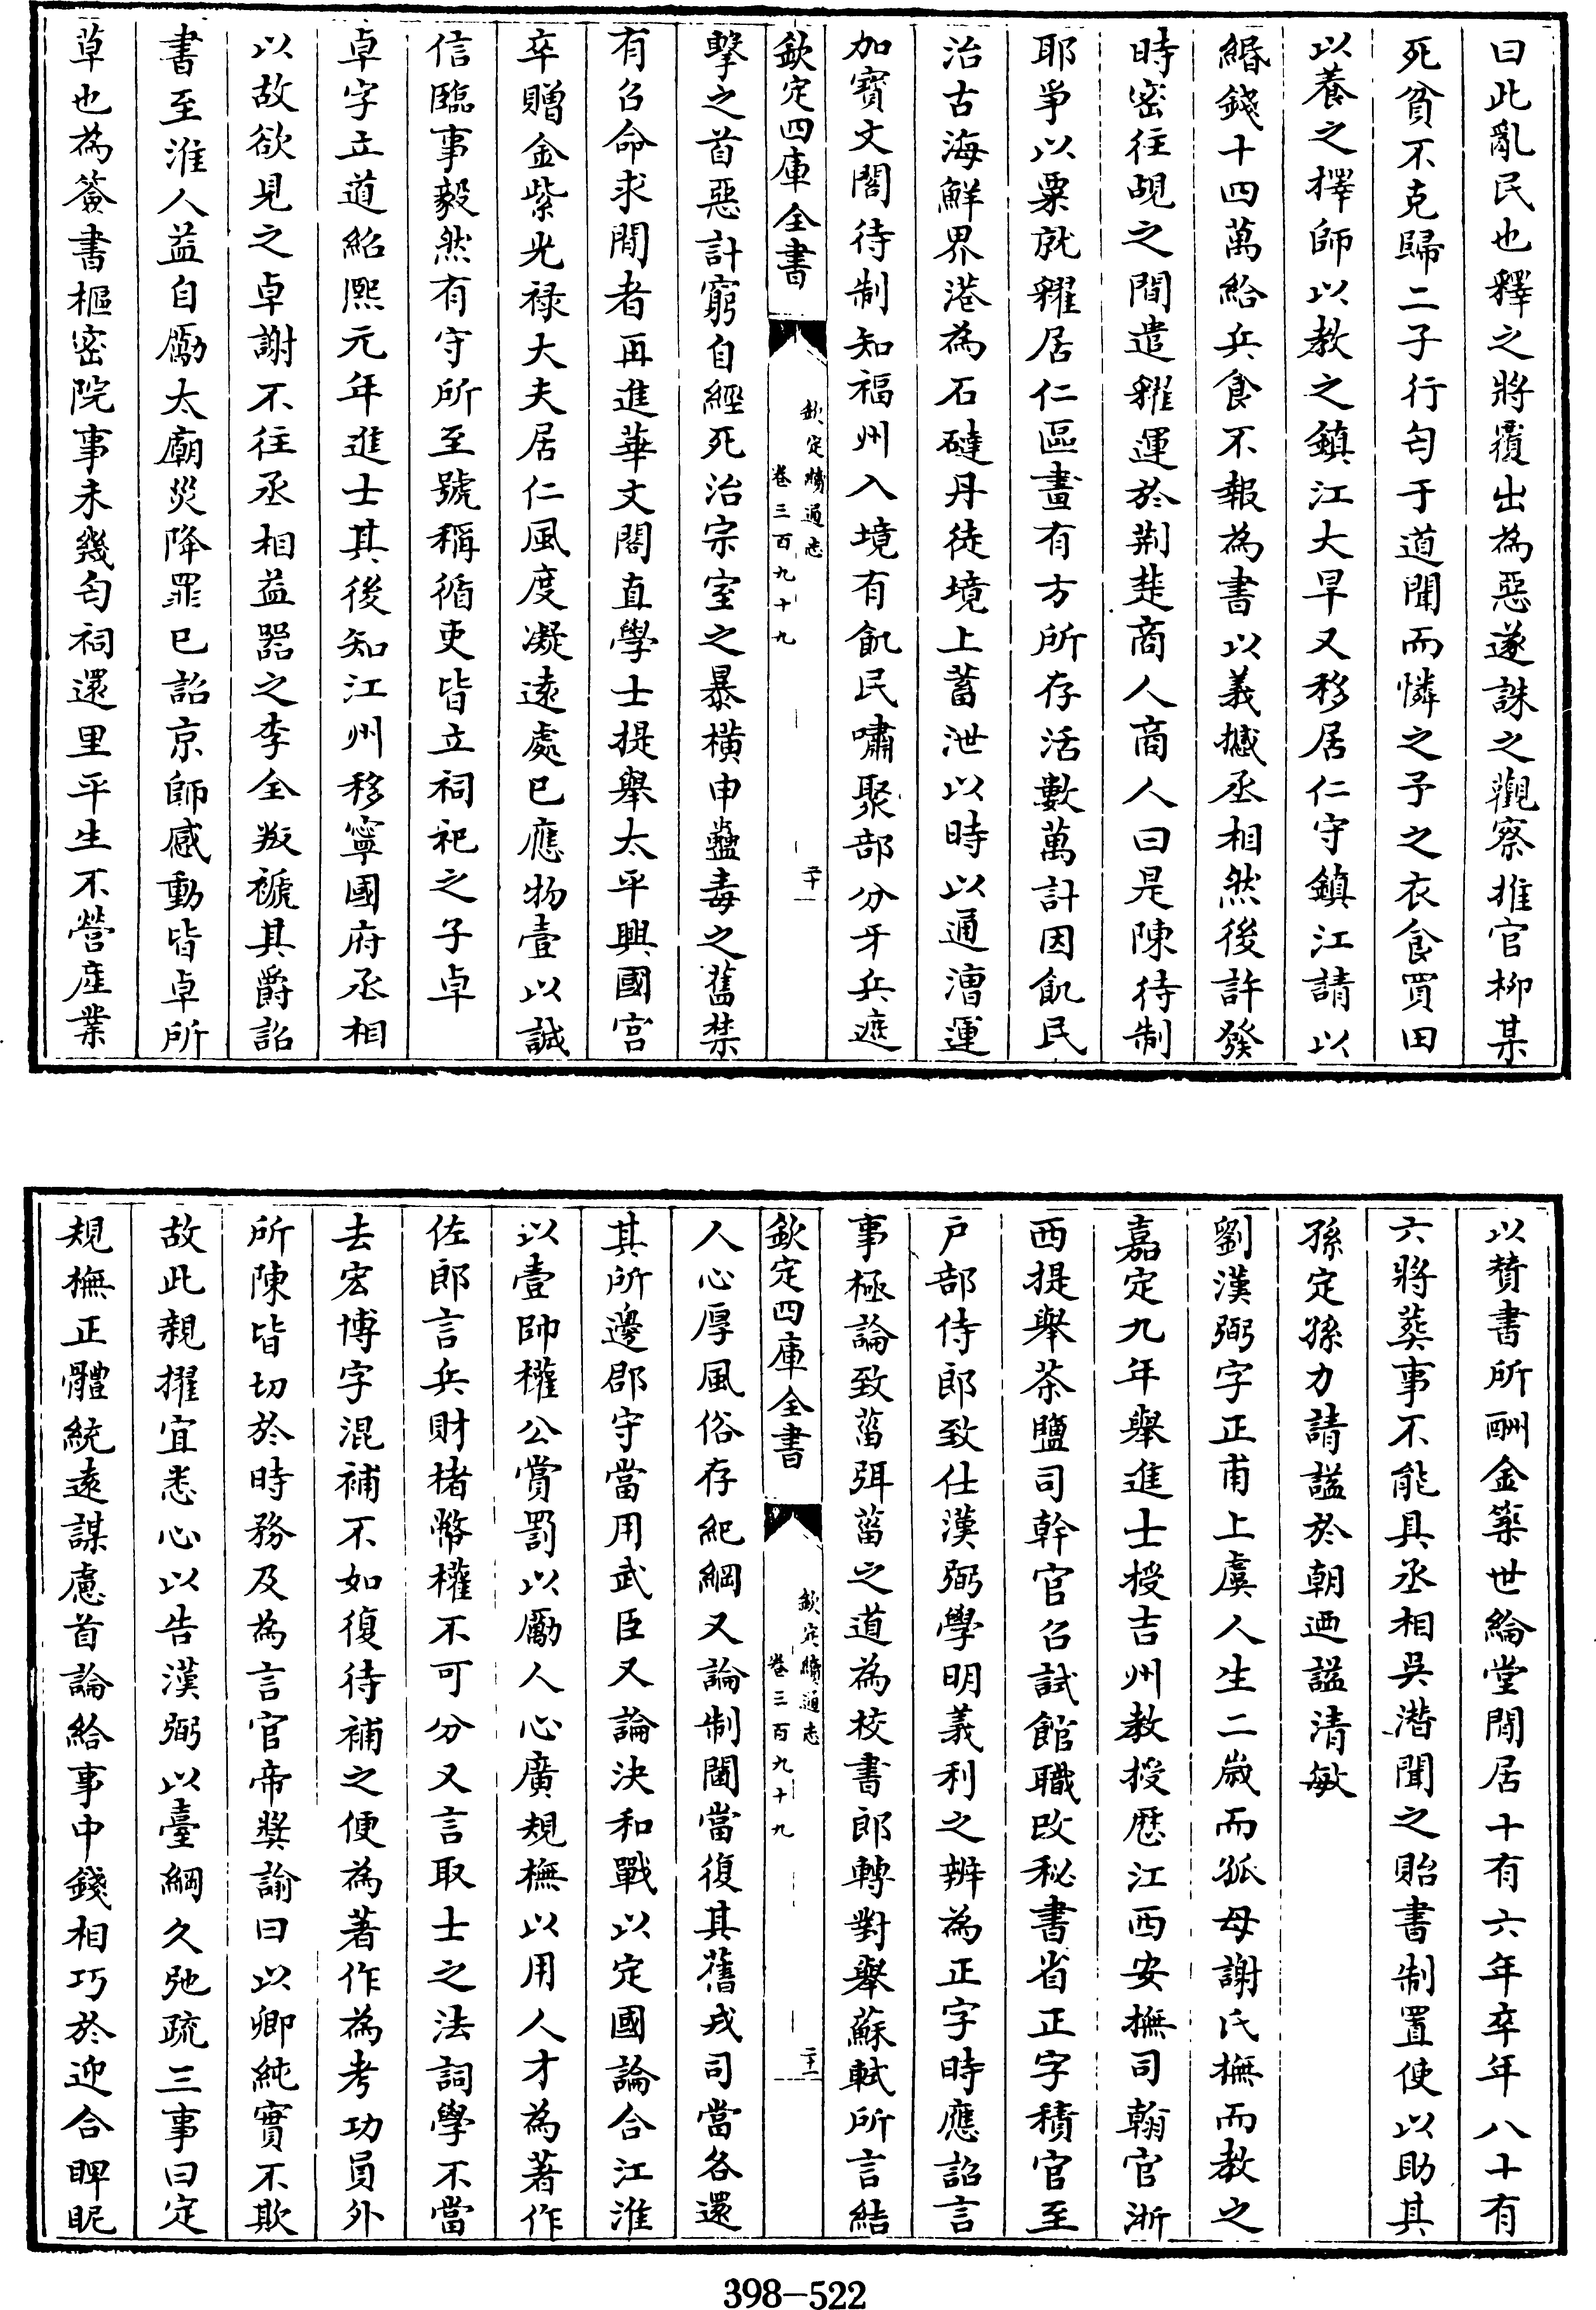 曰此亂民也釋之將覆出為惡遂誅之觀察推官柳某
死貧不克歸二子行匄于道聞而憐之予之衣食買田
以養之擇師以教之鎮江大旱又移居仁守鎮江請以
緡錢十四萬給兵食不報為書以義撼丞相然後許發
時密往覘之間遣糴運於荆楚商人商人曰是陳待制
耶爭以粟就糴居仁區畫有方所存活數萬計因飢民
治古海鮮界港為石䃮丹徒境上蓄泄以時以通漕運
加寳文閣待制知福州入境有飢民嘯聚部分牙兵遮
欽定四庫全書
欽定續通志
卷三百九十九
二十一
擊之首惡計窮自經死治宗室之暴橫申蠱毒之舊禁
有召命求閒者再進華文閣直學士提舉太平興國宫
卒贈金紫光祿大夫居仁風度凝遠處已應物壹以誠
信臨事毅然有守所至號稱循吏皆立祠祀之子卓
卓字立道紹熙元年進士其後知江州移寧國府丞相
以故欲見之卓謝不往丞相益噐之李全叛褫其爵詔
書至淮人益自勵太廟災降罪已詔京師感動皆卓所
草也為簽書樞密院事未幾匄祠還里平生不營産業
以賛書所酬金築世綸堂閒居十有六年卒年八十有
六將葬事不能具丞相吳潛聞之貽書制置使以助其
孫定孫力請諡於朝廼諡清敏
劉漢弼字正甫上虞人生二嵗而孤母謝氏撫而教之
嘉定九年舉進士授吉州教授歴江西安撫司翰官浙
西提舉茶鹽司幹官召試館職改秘書省正字積官至
户部侍郎致仕漢弼學明義利之辨為正字時應詔言
事極論致菑弭菑之道為校書郎轉對舉蘇軾所言結
欽定四庫全書
欽定續通志
卷三百九十九
二十二
人心厚風俗存紀綱又論制閫當復其舊戎司當各還
其所邊郡守當用武臣又論決和戰以定國論合江淮
以壹帥權公賞罰以勵人心廣規撫以用人才為著作
佐郎言兵財楮幣權不可分又言取士之法詞學不當
去宏博字混補不如復待補之便為著作為考功員外
所陳皆切於時務及為言官帝奬諭曰以卿純實不欺
故此親擢宜悉心以告漢弼以臺綱久弛疏三事曰定
規撫正體統遠謀慮首論給事中錢相巧於迎合睥睨
398—522